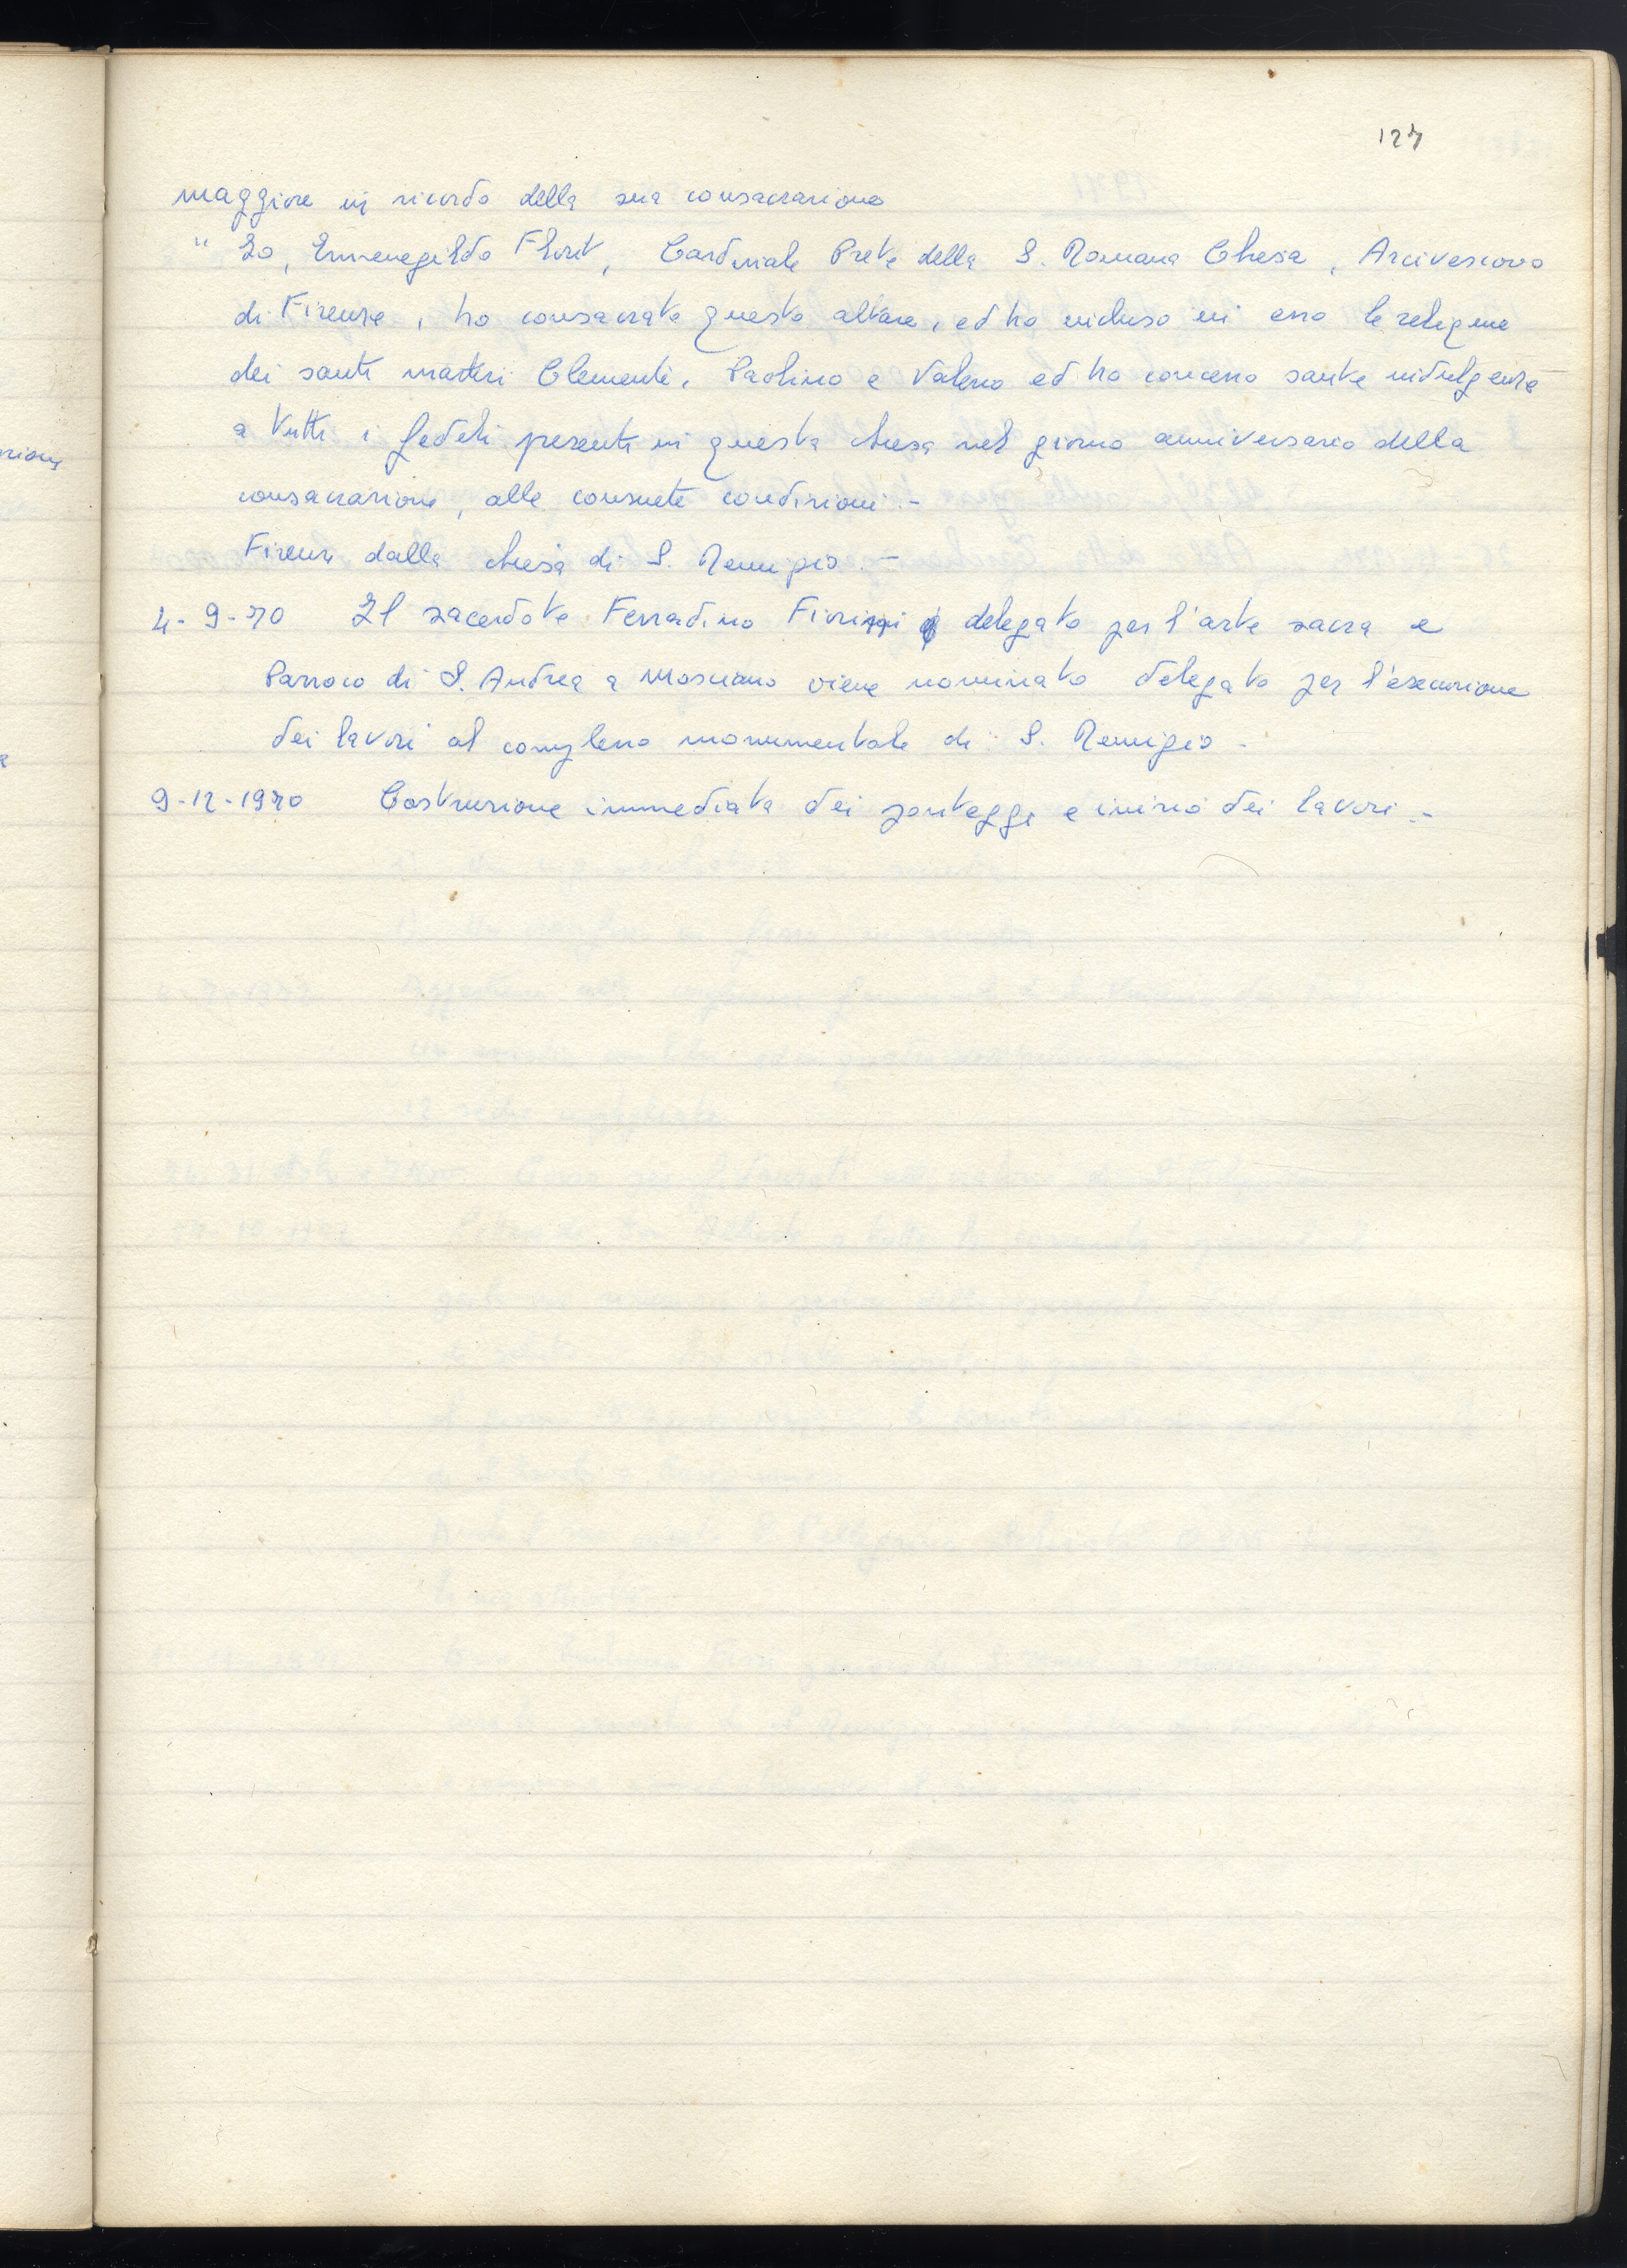 127
maggiore in ricordo della sua consacrazione
" Io, Ermenegildo Florit, Cardinale Prete della S. Romana Chiesa, Arcivescovo
di Firenze, ho consacrato questo altare, ed ho incluso in esso le reliquie
dei santi martiri Clemente, Paolino e Valerio ed ho concesso sante indulgenze
a tutti i fedeli presenti in questa chiesa nel giorno anniversario della
consacrazione, alle consuete condizioni.-
Firenze dalla chiesa di S. Remigio.-
4-9-70 Il sacerdote Ferradino Fiorini delegato per l'arte sacra e
Parroco di S. Andrea a Mosciano viene nominato delegato per l'esecuzione
dei lavori al complesso monumentale di S. Remigio-
9-12-1970 Costruzione immediata dei ponteggi e inizio dei lavori.-